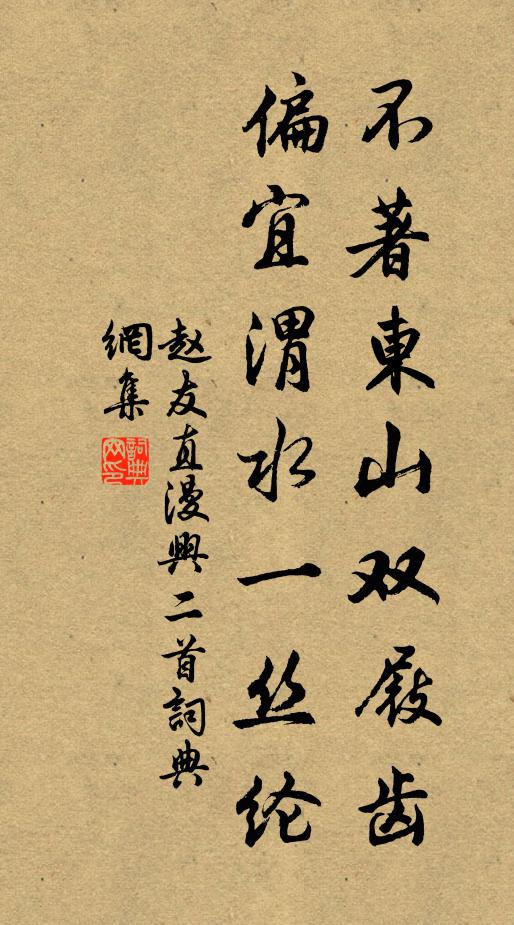 不著東山双屐齿
偏宜渭水一丝纶
赵友直漫興二首詞典
網集
詞典
网印